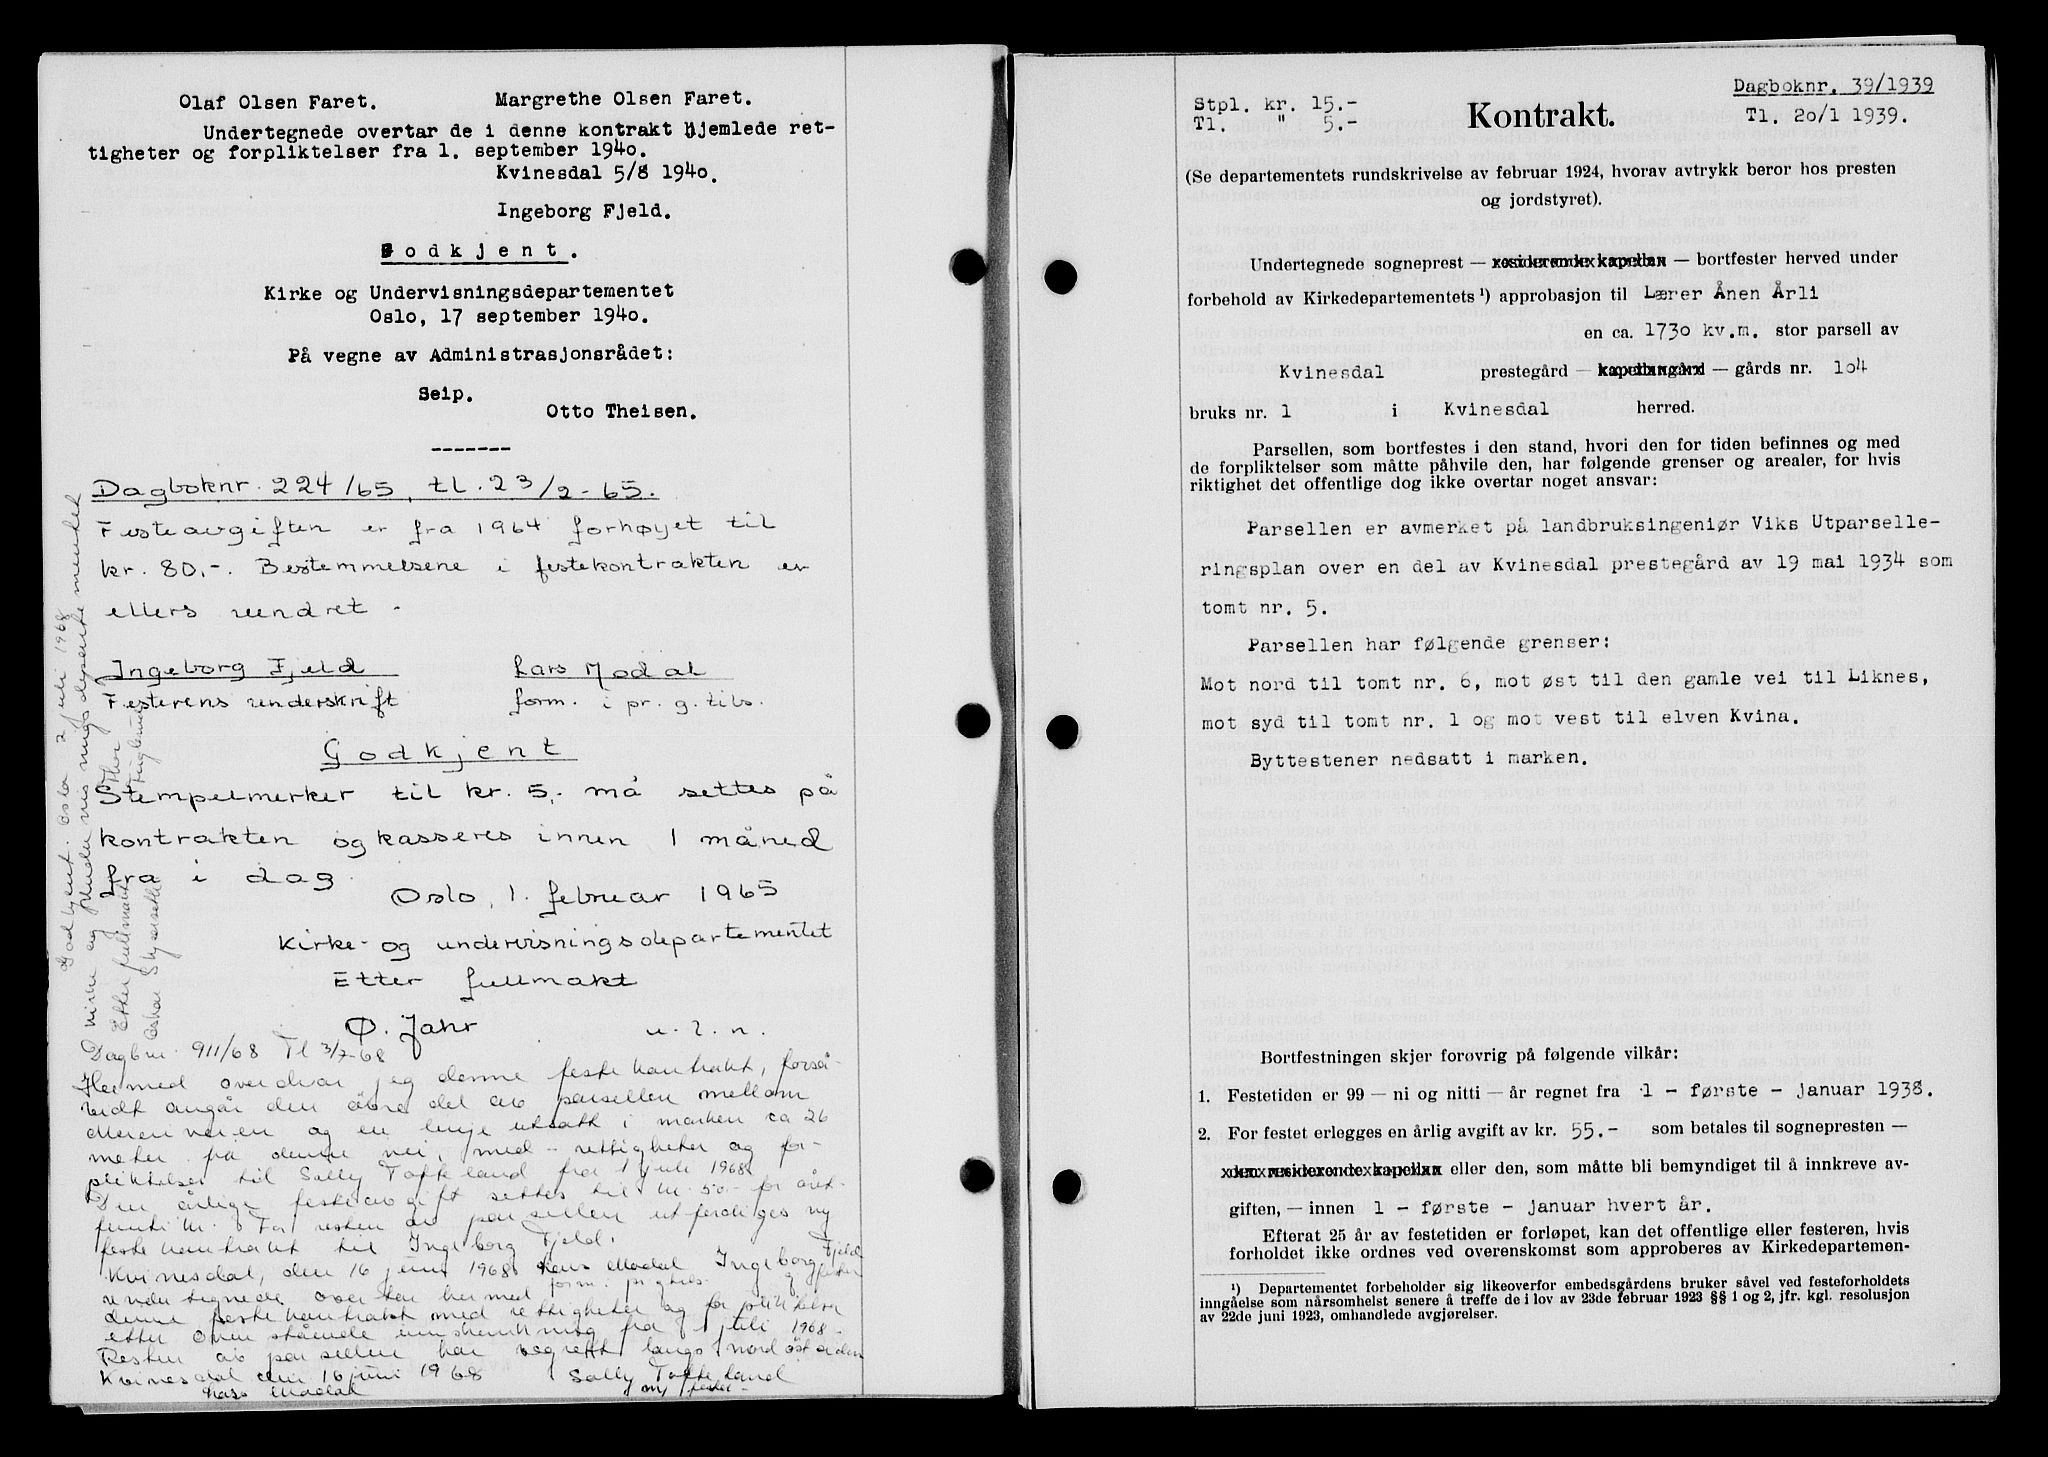 Olaf Olsen Faret. Margrethe Olsen Faret.
Undertegnede overtar de i denne kontrakt hjemlede ret-
tigheter og forpliktelser fra 1. september 1940.
Kvinesdal 5/8 1940.
Ingeborg Fjeld.
Godkjent.
Kirke og Undervisningsdepartementet
Oslo, 17 september 1940.
På vegne av Administrasjonsrådet:
Seip.
Otto Theisen.
Dagboknr. 224/65, tl. 23/2-65.
Festeavgiften er fra 1964 forhøyet til
kr. 80,-. Bestemmelsene i festekontrakten er
ellers uendret.
Ingeborg Fjeld Lars Modal
Festerens underskrift form. i pr. g. tils.
Godkjent
Stempelmerker til kr. 5,- må settes på
kontrakten og kasseres innen 1 måned
fra i dag.
Oslo, 1. februar 1965
Kirke- og undervisningsdepartementet
Etter fullmakt
Ø. Jahr u. l. n.
Godkjent. Oslo 2 juli 1968
Kirke og Undervisningsdepartementet
Etter fullmakt Thor
Oskar
Dagbnr. 911/68 Tl 3/7-68
Hermed overdrar jeg denne festekontrakt, forså-
vidt angår den øvre del av parsellen mellom
veien og en linje utsatt i marken ca 26
meter på denne vei, med rettigheter og for-
pliktelser til Sally Tofteland fra 1 juli 1968
Den årlige festeavgift settes til kr. 50.- for året-
femti kr. For resten av parsellen utferdiges ny
festekontrakt til Ingeborg Fjeld.
Kvinesdal, den 16 juni 1968 Lars Modal Ingeborg Fjeld
form. i pr. g. tils. fester
undertegnede overtar hermed
denne festekontrakt med rettigheter og forpliktelser
etter ovenstående innskrenkning fra 1 juli 1968.
Resten av parsellen har
Kvinesdal den 16 juni 1968 Sally Tofteland
Lars Modal ny fester
Dagboknr. 39/1939
Stpl. kr. 15.-
Tl. " 5.-
Kontrakt.
Tl. 20/1 1939.
(Se departementets rundskrivelse av februar 1924, hvorav avtrykk beror hos presten
og jordstyret).
Undertegnede sogneprest — residerende kapellan — bortfester herved under
forbehold av Kirkedepartementets¹) approbasjon til Lærer Ånen Årli
en ca. 1730 kv.m. stor parsell av
Kvinesdal prestegård — kapellangård — gårds nr. 104
bruks nr. 1 i Kvinesdal herred.
Parsellen, som bortfestes i den stand, hvori den for tiden befinnes og med
de forpliktelser som måtte påhvile den, har følgende grenser og arealer, for hvis
riktighet det offentlige dog ikke overtar noget ansvar:
Parsellen er avmerket på landbruksingeniør Viks Utparselle-
ringsplan over en del av Kvinesdal prestegård av 19 mai 1934 som
tomt nr. 5.
Parsellen har følgende grenser:
Mot nord til tomt nr. 6, mot øst til den gamle vei til Liknes,
mot syd til tomt nr. 1 og mot vest til elven Kvina.
Byttestener nedsatt i marken.
Bortfestningen skjer forøvrig på følgende vilkår:
1. Festetiden er 99 — ni og nitti — år regnet fra 1 - første - januar 1938.
2. For festet erlegges en årlig avgift av kr. 55.- som betales til sognepresten —
den residerende kapellan eller den, som måtte bli bemyndiget til å innkreve av-
giften, — innen 1 - første - januar hvert år.
Efterat 25 år av festetiden er forløpet, kan det offentlige eller festeren, hvis
forholdet ikke ordnes ved overenskomst som approberes av Kirkedepartemen-
¹) Departementet forbeholder sig likeoverfor embedsgårdens bruker såvel ved festeforholdets
inngåelse som nårsomhelst senere å treffe de i lov av 23de februar 1923 §§ 1 og 2, jfr. kgl. resolusjon
av 22de juni 1923, omhandlede avgjørelser.